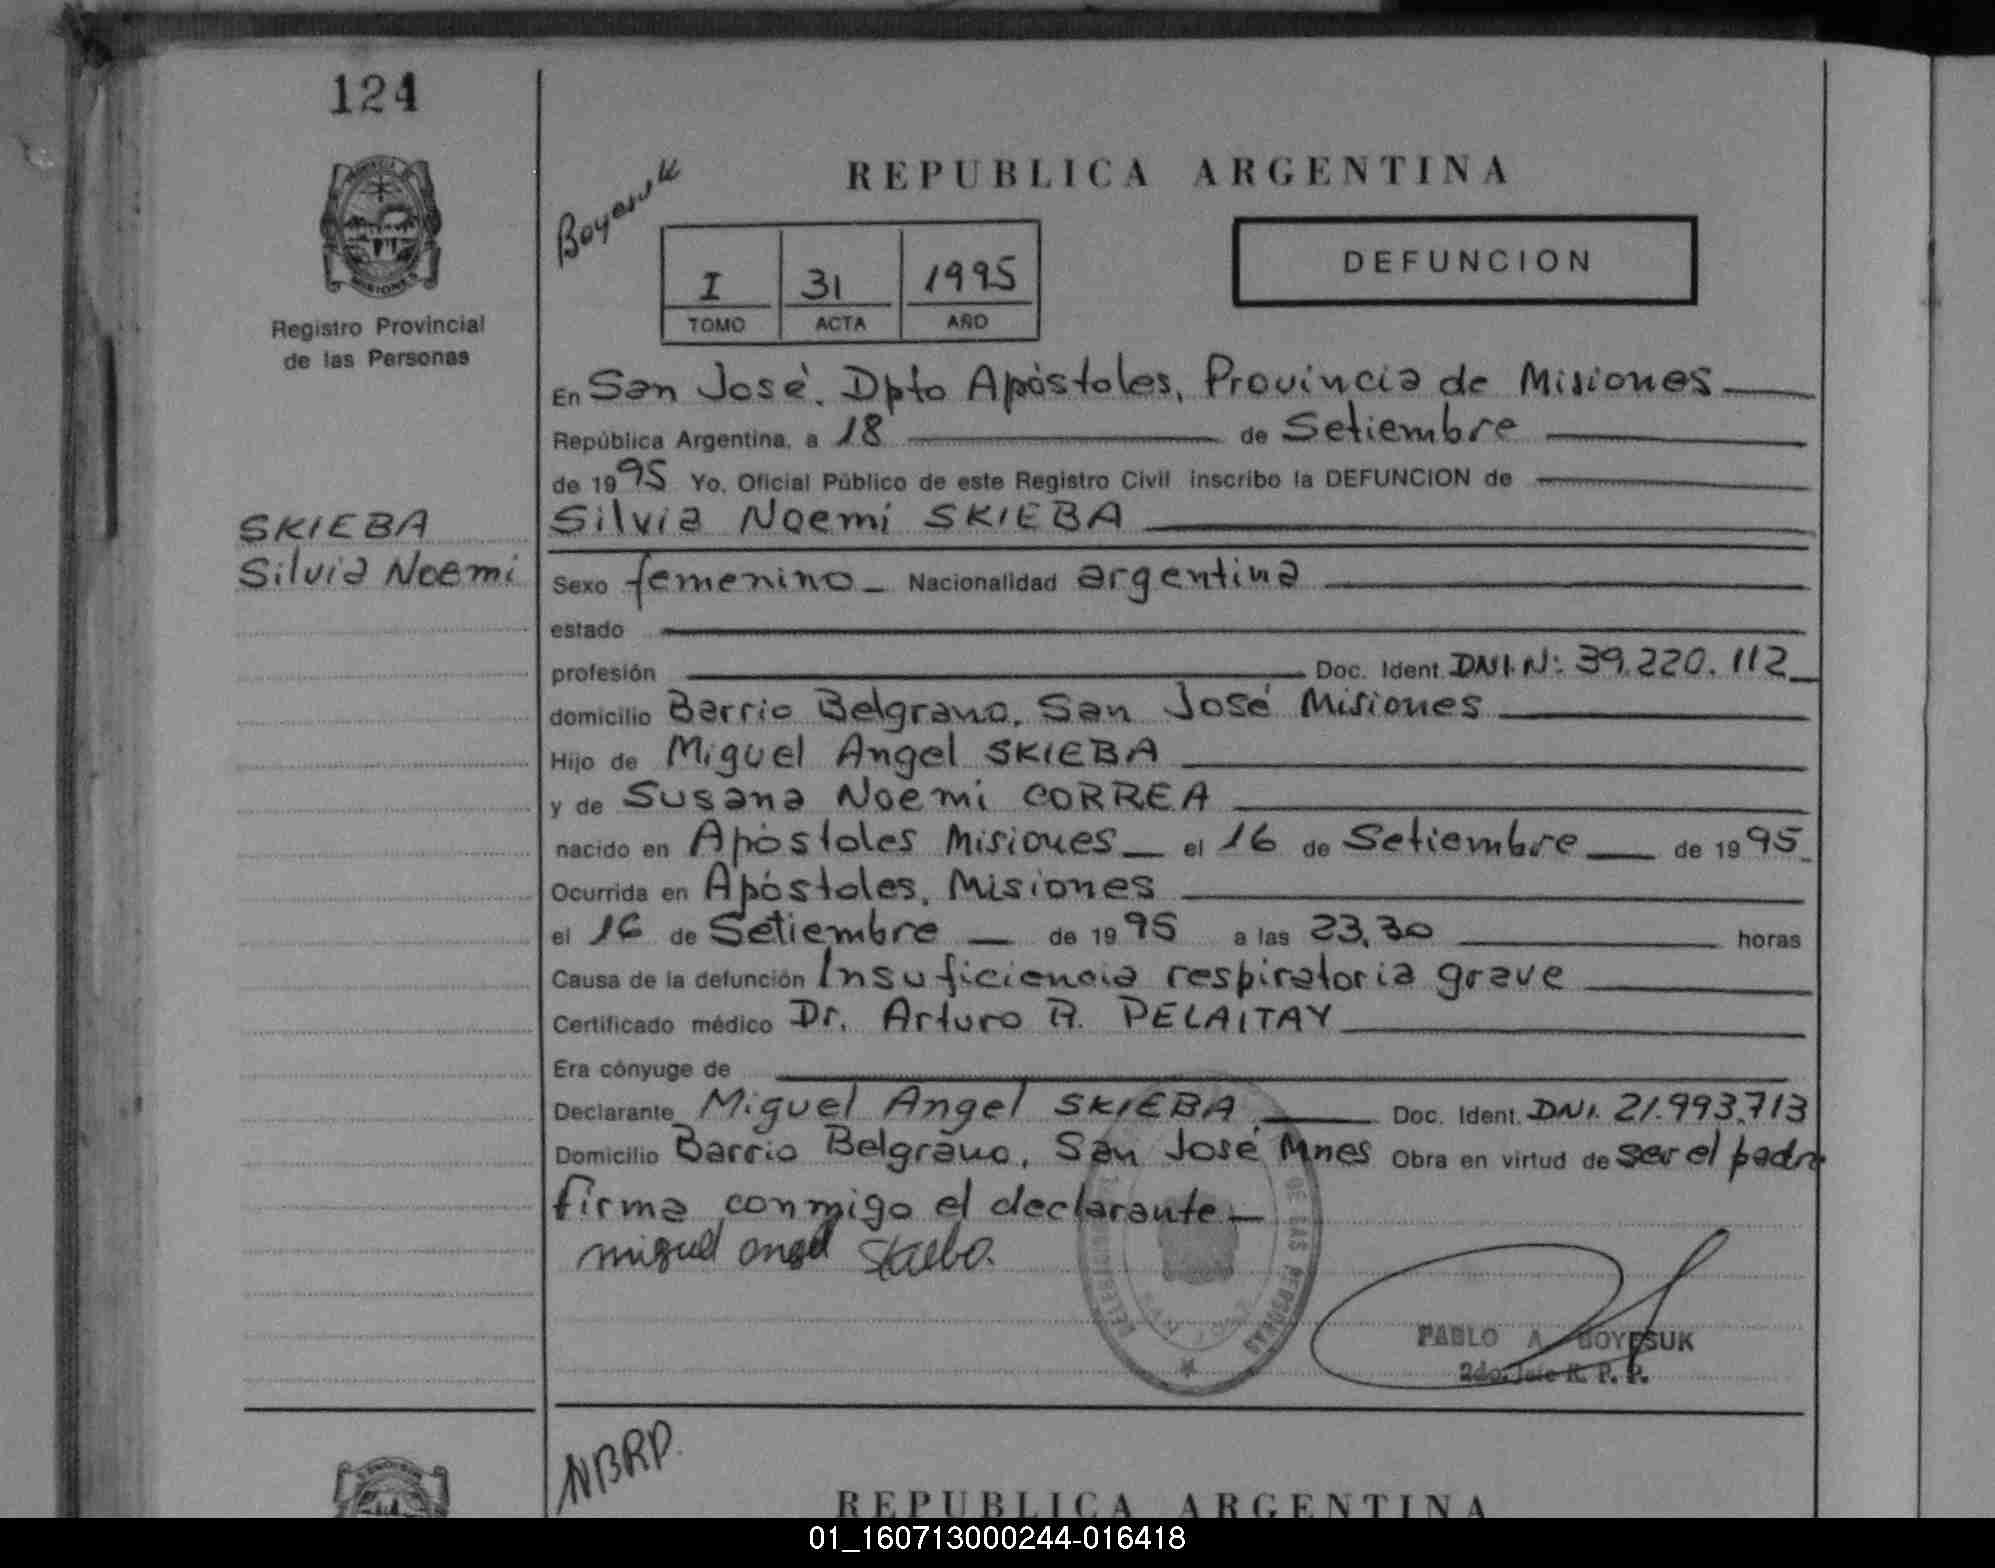 124
Registro Provincial
de las Personas
SKIEBA
Silvia Noemi
Boyesuk
REPUBLICA ARGENTINA
I 31 1995
TOMO ACTA AÑO
DEFUNCION
En San José, Dpto Apóstoles, Provincia de Misiones
República Argentina, a 18 de Setiembre
de 1995 Yo, Oficial Público de este Registro Civil inscribo la DEFUNCION de
Silvia Noemi SKIEBA
Sexo femenino Nacionalidad argentina
estado
profesión Doc. Ident. DNI. N: 39.220.112
domicilio Barrio Belgrano, San José Misiones
Hijo de Miguel Angel SKIEBA
y de Susana Noemi CORREA
nacido en Apóstoles Misiones el 16 de Setiembre de 1995
Ocurrida en Apóstoles, Misiones
el 16 de Setiembre de 1995 a las 23,30 horas
Causa de la defunción Insuficiencia respiratoria grave
Certificado médico Dr. Arturo R. PELAITAY
Era cónyuge de
Declarante Miguel Angel SKIEBA Doc. Ident. DNI. 21.993.713
Domicilio Barrio Belgrano, San José Mnes Obra en virtud de ser el padre
firma conmigo el declarante
miguel angel Skieba
DE LAS PERSONAS
PABLO A. BOYESUK
2do. Jefe R. P. P.
NBRP.
REPUBLICA ARGENTINA
01_160713000244-016418